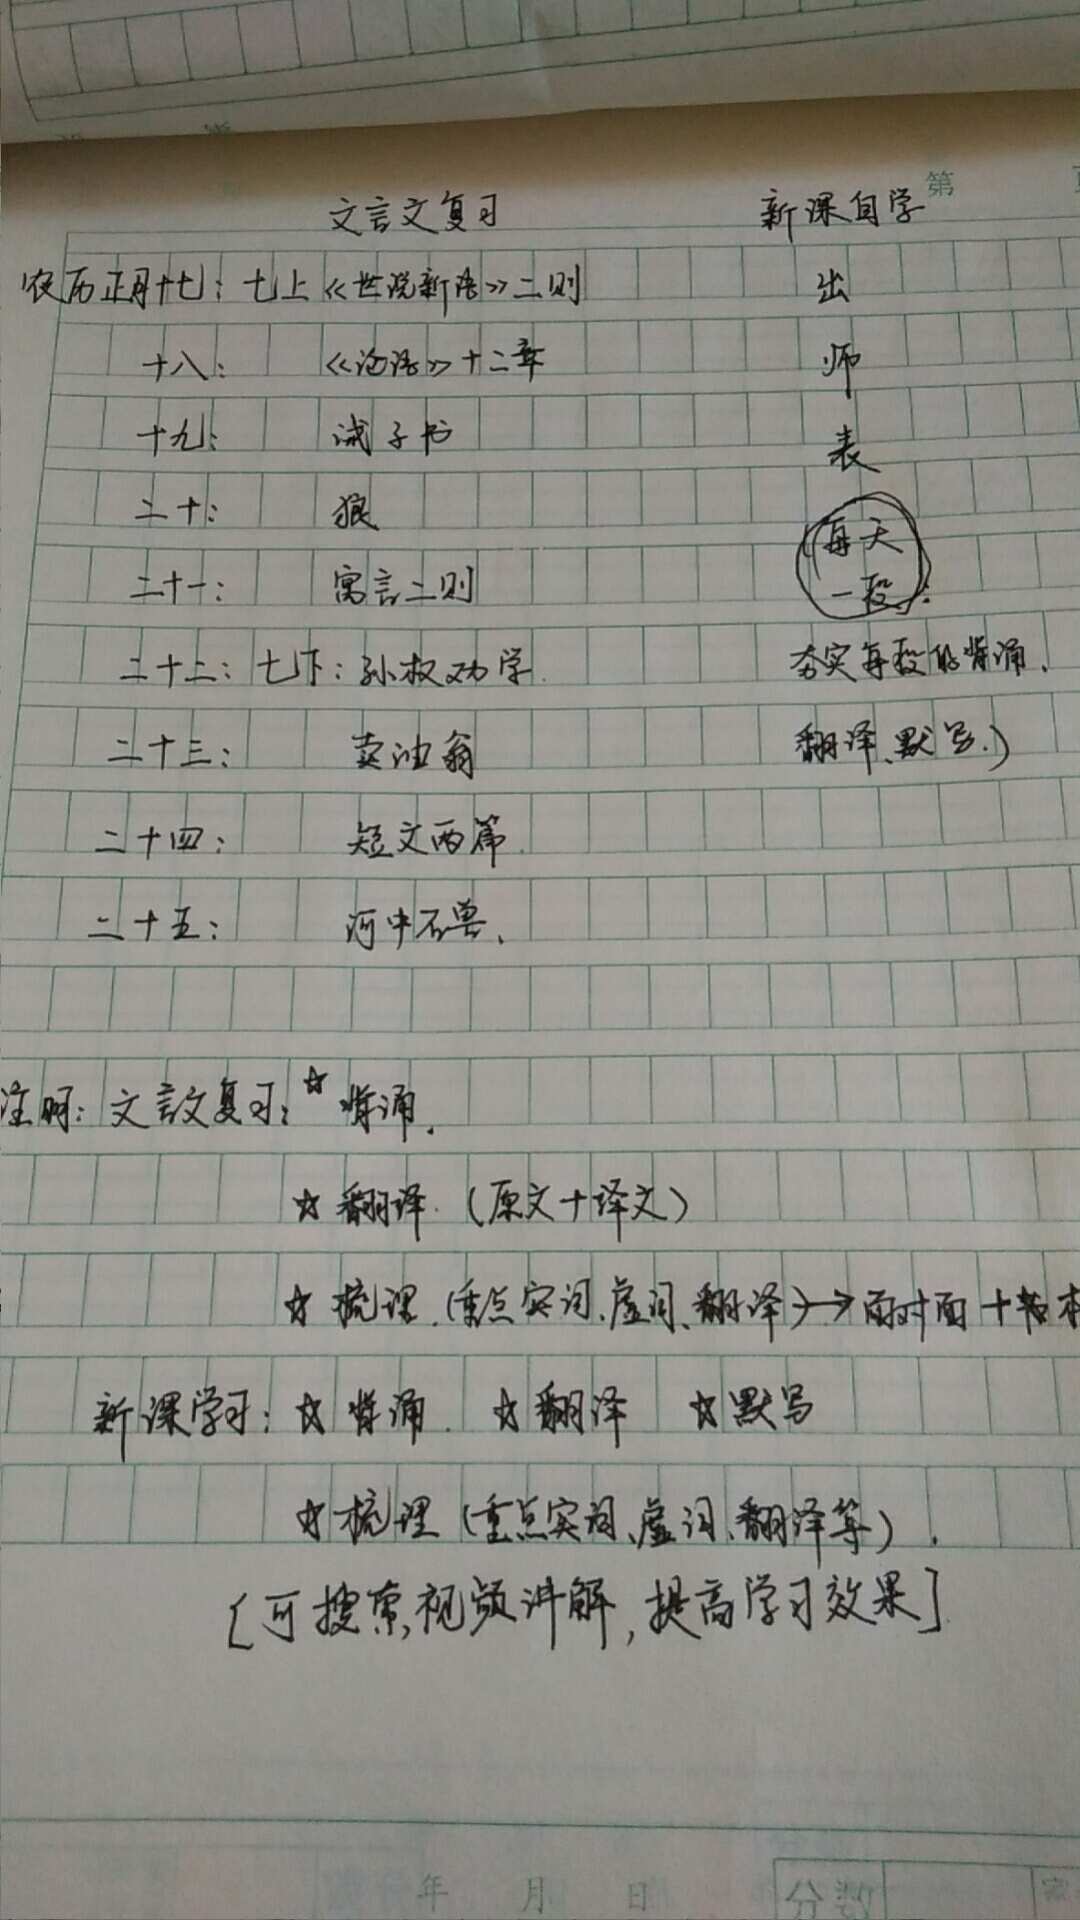 第
文言文复习 新课自学
农历正月十七: 七上《世说新语》二则 出
十八: 《论语》十二章 师
十九: 诫子书 表
二十: 狼 (每天
二十一: 寓言二则 一段):
二十二: 七下: 孙权劝学. 夯实每段的背诵、
二十三: 卖油翁 翻译、默写.)
二十四: 短文两篇.
二十五: 河中石兽、
注明: 文言文复习: ☆背诵.
☆翻译. (原文+译文)
☆梳理.(重点实词、虚词、翻译)→面对面+书本
新课学习: ☆背诵. ☆翻译 ☆默写
☆梳理(重点实词、虚词、翻译等).
[可搜索视频讲解,提高学习效果]
年 月 日 分数